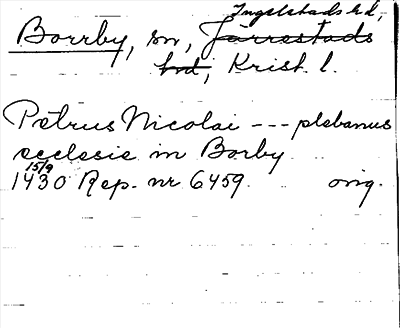 Ingelstads hd,
Borrby, sn, Järrestads
hd, Krist. l.
Petrus Nicolai --- plebanus
ecclesie in Borby
15/9
1430 Rep. nr 6459. orig.